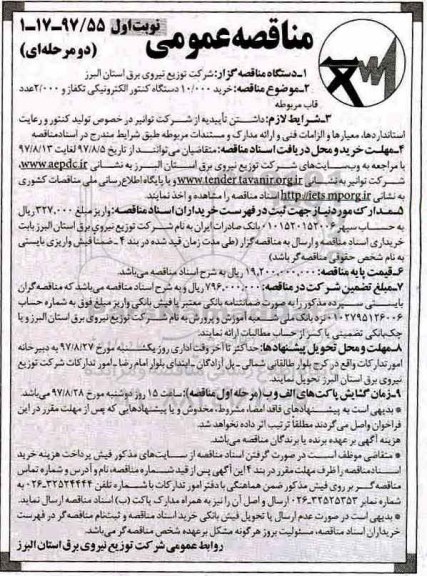 مناقصه عمومی
نوبت اول ۹۷/۵۵-۱۷-۱
(دو مرحله‌ای)
۱-دستگاه مناقصه گزار: شرکت توزیع نیروی برق استان البرز
۲-موضوع مناقصه: خرید ۱۰/۰۰۰ دستگاه کنتور الکترونیکی تکفاز و ۲/۰۰۰ عدد
قاب مربوطه
۳-شرایط لازم: داشتن تأییدیه از شرکت توانیر در خصوص تولید کنتور و رعایت
استانداردها، معیارها و الزامات فنی و ارائه مدارک و مستندات مربوطه طبق شرایط مندرج در اسناد مناقصه
۴-مهلت خرید و محل دریافت اسناد مناقصه: متقاضیان می‌توانند از تاریخ ۹۷/۸/۵ لغایت ۹۷/۸/۱۳
با مراجعه به وب‌سایت‌های شرکت توزیع نیروی برق استان البرز به نشانی www.aepdc.ir،
شرکت توانیر به نشانی www.tender.tavanir.org.ir و یا پایگاه اطلاع رسانی ملی مناقصات کشوری
به نشانی http://iets.mporg.ir اسناد مناقصه را مشاهده و اخذ نمایند.
۵-مدارک مورد نیاز جهت ثبت در فهرست خریداران اسناد مناقصه: واریز مبلغ ۳۲۷,۰۰۰ ریال
به حساب سپهر ۰۱۰۱۵۲۰۱۵۲۰۰۶ بانک صادرات ایران به نام شرکت توزیع نیروی برق استان البرز بابت
خریداری اسناد مناقصه و ارسال به مناقصه گزار (طی مدت زمان قید شده در بند ۴-ضمنا فیش واریزی بایستی
به نام شخص حقوقی مناقصه‌گر باشد)
۶-قیمت پایه مناقصه: ۱۹,۲۰۰,۰۰۰,۰۰۰ ریال به شرح اسناد مناقصه می‌باشد.
۷-مبلغ تضمین شرکت در مناقصه: ۷۹۶,۰۰۰,۰۰۰ ریال و به شرح اسناد مناقصه می‌باشد که مناقصه‌گران
بایستی سپرده مذکور را به صورت ضمانتنامه بانکی معتبر یا فیش بانکی واریز مبلغ فوق به شماره حساب
۰۱۰۲۷۹۵۱۲۶۰۰۶ نزد بانک ملی شعبه آموزش و پرورش به نام شرکت توزیع نیروی برق استان البرز و یا
چک بانکی تضمینی یا کسر از حساب مطالبات ارائه نمایند.
۸-مهلت و محل تحویل پیشنهادها: حداکثر تا آخر وقت اداری روز یکشنبه مورخ ۹۷/۸/۲۷ به دبیرخانه
امور تدارکات واقع در کرج بلوار طالقانی شمالی-پل آزادگان-ابتدای بلوار امام رضا-امور تدارکات شرکت توزیع
نیروی برق استان البرز تحویل نمایند.
۹-زمان گشایش پاکت‌های الف و ب (مرحله اول مناقصه): ساعت ۱۵ روز دوشنبه مورخ ۹۷/۸/۲۸ می‌باشد.
* بدیهی است به پیشنهادهای فاقد امضا، مشروط، مخدوش و یا پیشنهادهایی که پس از مهلت مقرر در این
فراخوان واصل می‌گردند مطلقا ترتیب اثر داده نخواهد شد.
هزینه آگهی بر عهده برنده یا برندگان مناقصه می‌باشد.
* متقاضی موظف است در صورت گرفتن اسناد مناقصه از سایت‌های مذکور فیش پرداخت هزینه خرید
اسناد مناقصه را ظرف مهلت مقرر در بند ۴ این آگهی پس از قید شماره مناقصه، نام و آدرس و شماره تماس
مناقصه گر بر روی فیش مذکور ضمن هماهنگی با دفتر امور تدارکات با شماره تلفن ۳۲۵۲۴۴۴۴-۰۲۶ به
شماره نمابر ۳۲۵۲۵۳۵۳-۰۲۶ ارسال و اصل آن را نیز به همراه مدارک پاکت (ب) اسناد مناقصه ارسال نماید.
* بدیهی است در صورت عدم ارسال یا تحویل فیش بانکی خرید اسناد مناقصه و ثبت نام مناقصه گر در فهرست
خریداران اسناد مناقصه، مسئولیت بروز هرگونه مشکل بر عهده شخص مناقصه گر می‌باشد.
روابط عمومی شرکت توزیع نیروی برق استان البرز